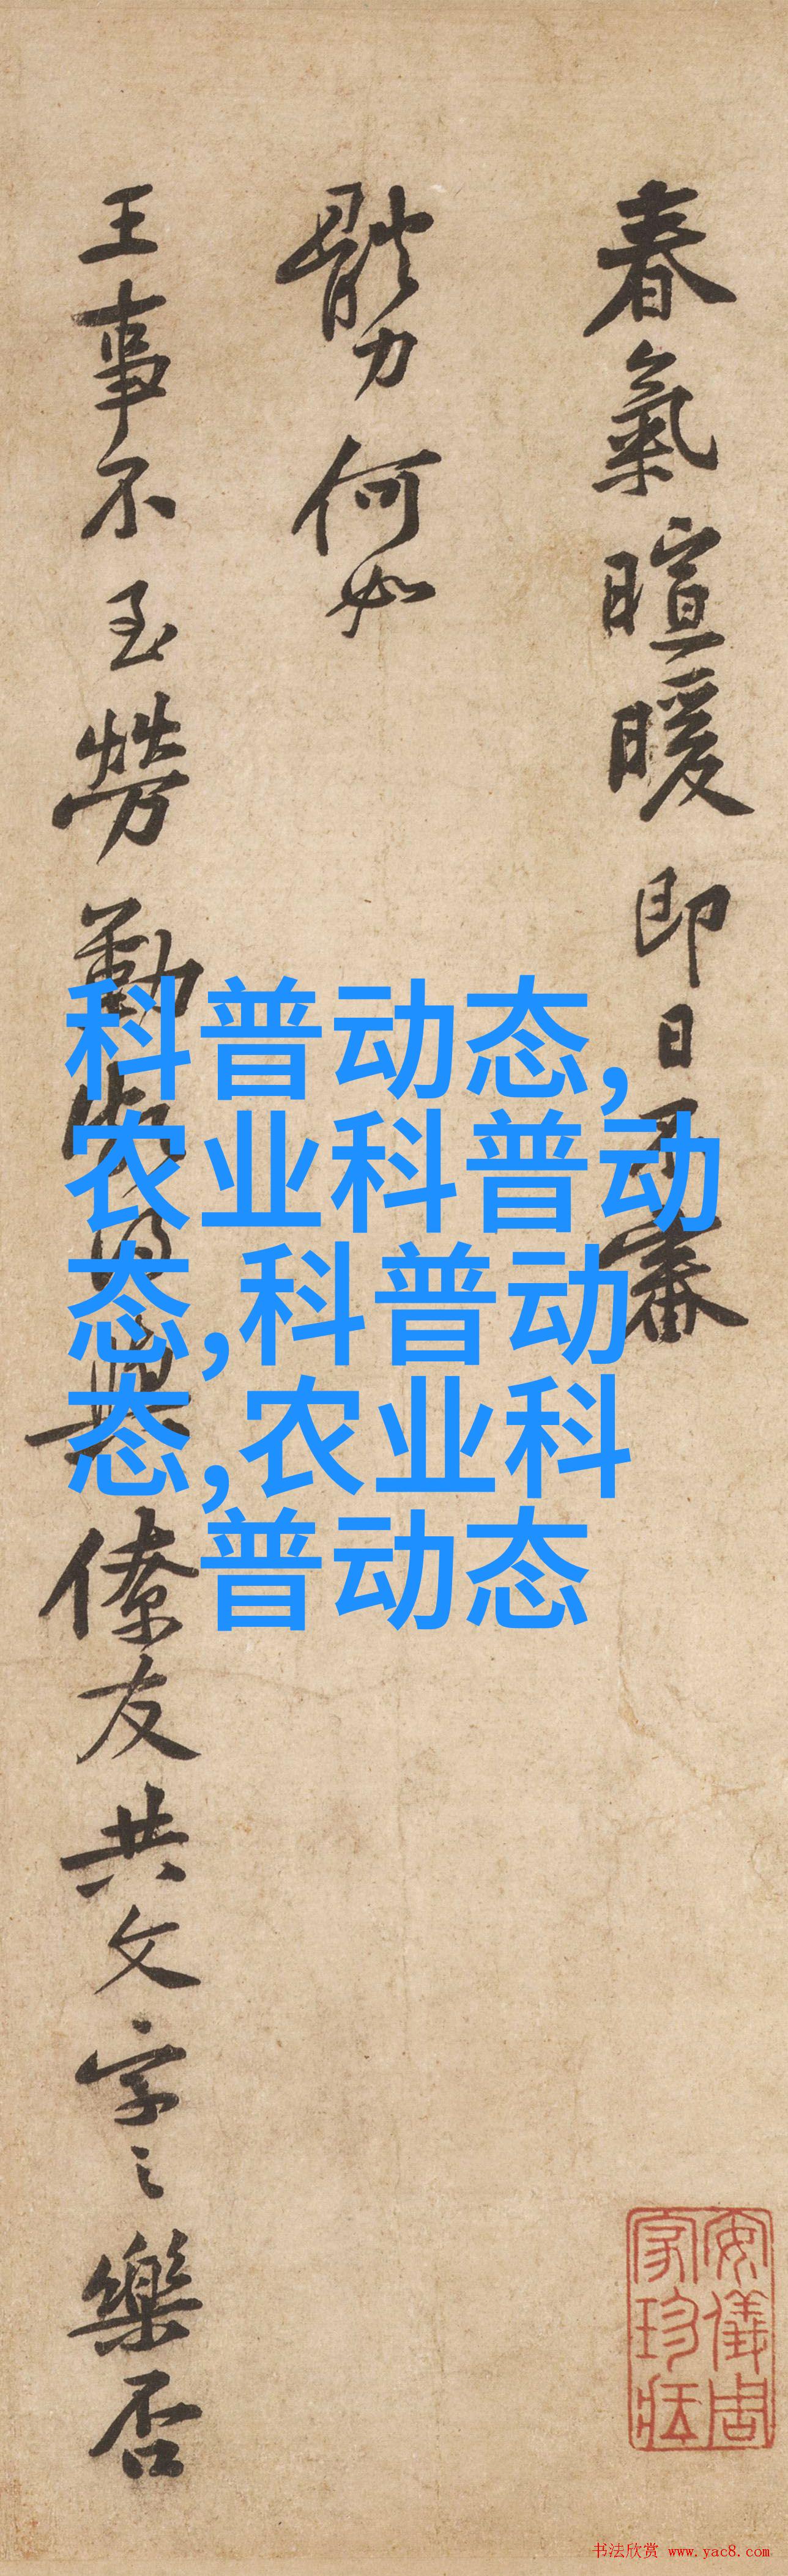 春氣暄暖即日不審
體力何如
王事不至勞勤
僚友共文字之樂否
科普动态,
农业科普动
态,科普动
态,农业科
普动态
安儀周
家珍藏
书法欣赏 www.yac8.com